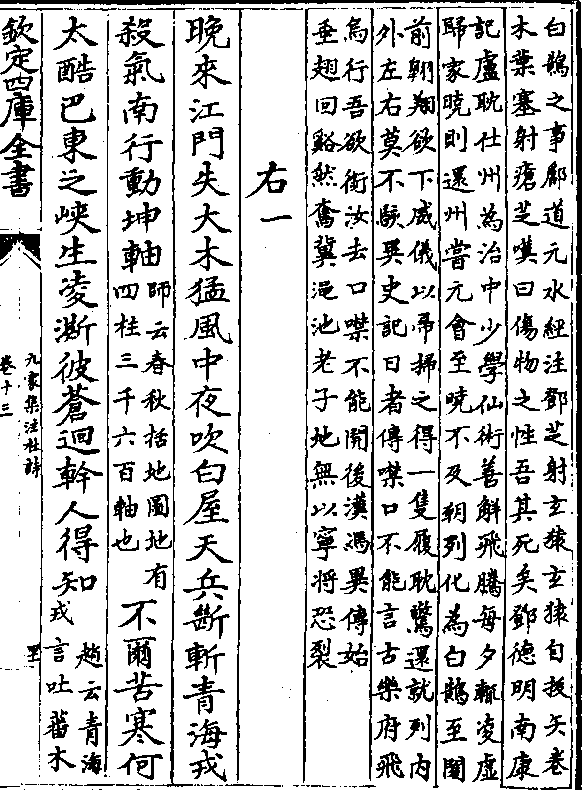 白鷴之事酈道元水經注鄧芝射玄猿玄猿自拔矢卷
木葉塞射瘡芝嘆曰傷物之性吾其死矣鄧德明南康
記盧耽仕州為治中少學仙術善解飛騰每夕輒凌虛
歸家曉則還州嘗元會至曉不及朝列化為白鵠至閣
前翺翔欲下威儀以帚掃之得一隻履耽驚還就列内
外左右莫不駭異史記日者傳噤口不能言古樂府飛
烏行吾欲銜汝去口噤不能開後漢馮異傳始
垂翅回谿然奮翼澠池老子地無以寧將恐裂
右一
晚來江門失大木猛風中夜吹白屋天兵斷斬青海戎
殺氣南行動坤軸師云春秋括地圖地有四柱三千六百軸也不爾苦寒何
太酷巴東之峽生凌澌彼蒼迴斡人得知趙云青海戎言吐蕃木
欽定四庫全書
九家集注杜詩
卷十三